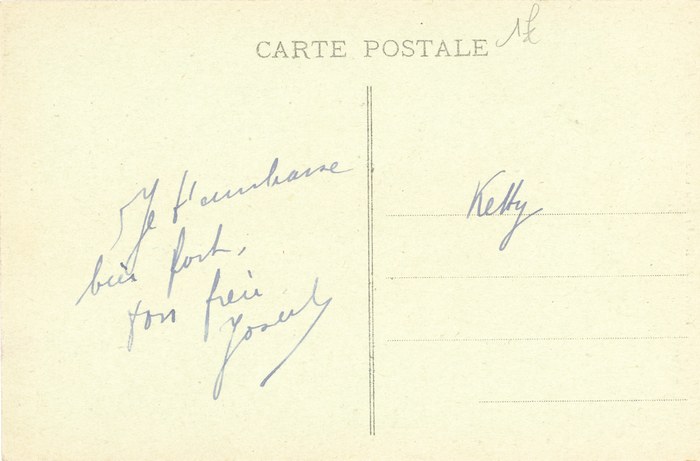 CARTE POSTALE
Je t'embrasse
bien fort,
ton frère
Joseph
Ketty